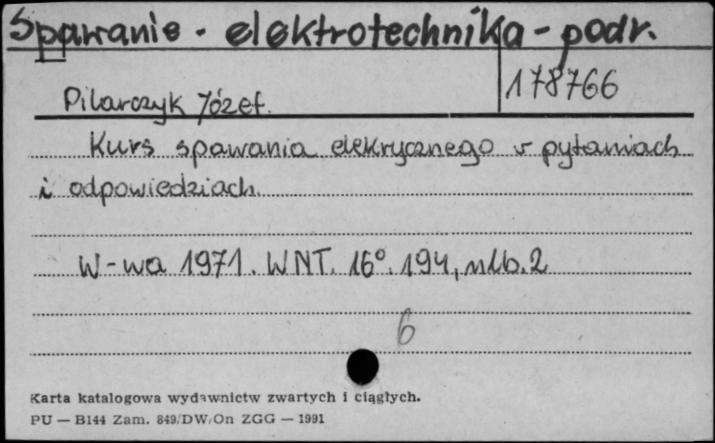 Spawanie - elektrotechnika - podr.
178766
Pilarczyk Józef.
Kurs spawania elekrycznego w pytaniach
i odpowiedziach.
W-wa 1971. WNT. 16°. 194, nlb. 2
6
Karta katalogowa wydawnictw zwartych i ciągłych.
PU — B144 Zam. 849/DW/On ZGG — 1991